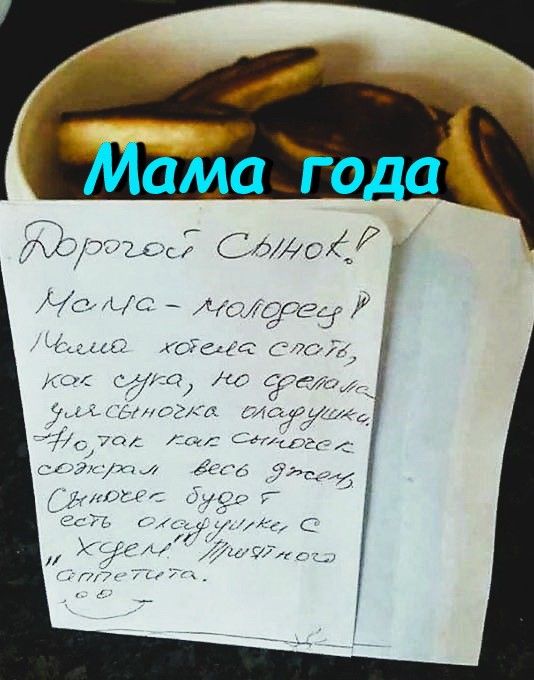 Мама года
Дорогой Сынок!
Мама - молодец!
Мама хотела спать,
как сука, но сделала
для сыночка оладушки.
Но, так как сыночек
сожрал весь джем,
Сыночек будет
есть оладушки с
"хуем". Приятного
аппетита.